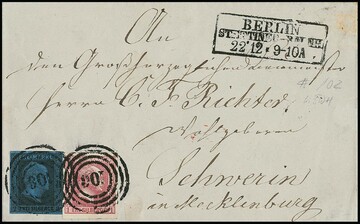 BERLIN
STETTINER-BAHNH.
22 12 * 9-10A
An
den Großherzoglichen
Herrn C. F. Richter,
Wohlgeboren
Schwerin
in Mecklenburg